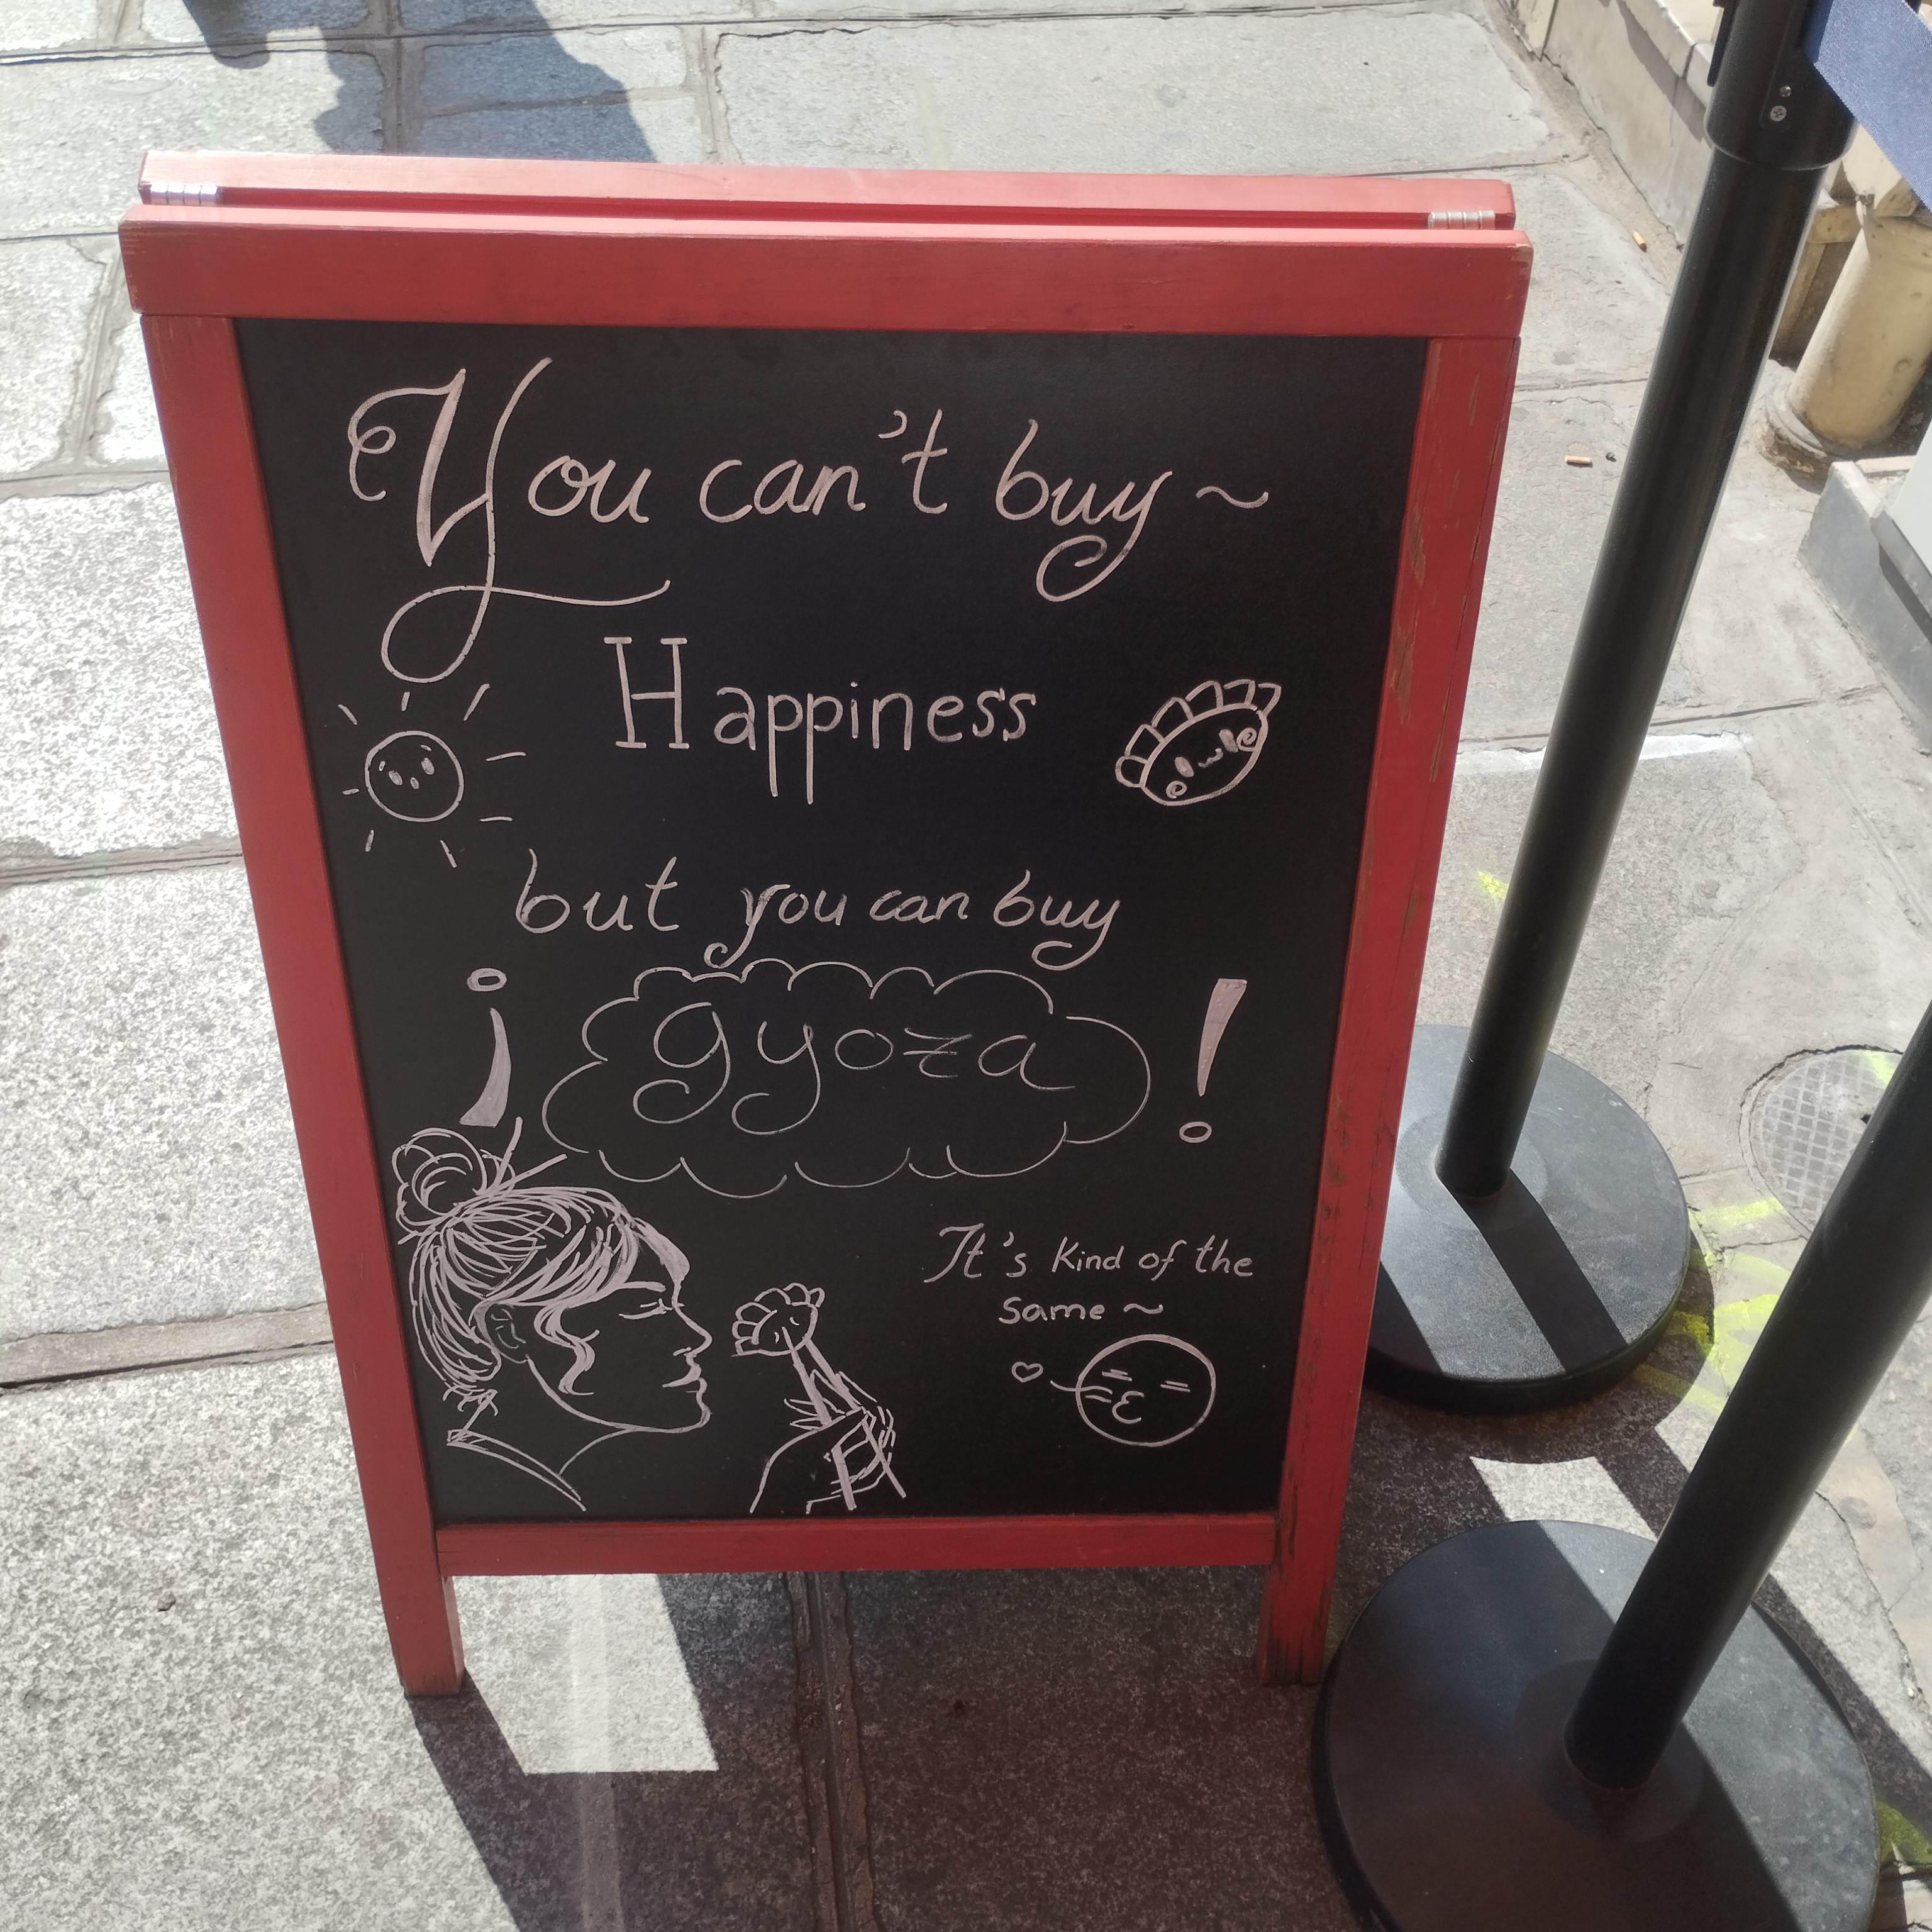 You can't buy ~
Happiness
but you can buy
¡ gyoza !
It's Kind of the
same ~